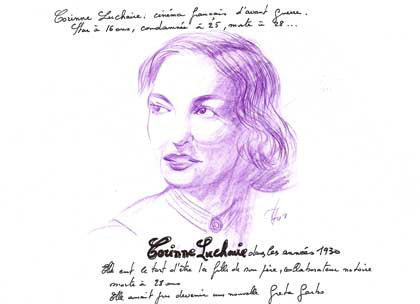 Corinne Luchaire: cinéma français d'avant guerre.
Star à 16 ans, condamnée à 25, morte à 28...
Corinne Luchaire dans les années 1930
Elle eut le tort d'être la fille de son père, collaborateur notoire
morte à 28 ans
Elle aurait pu devenir une nouvelle Greta Garbo